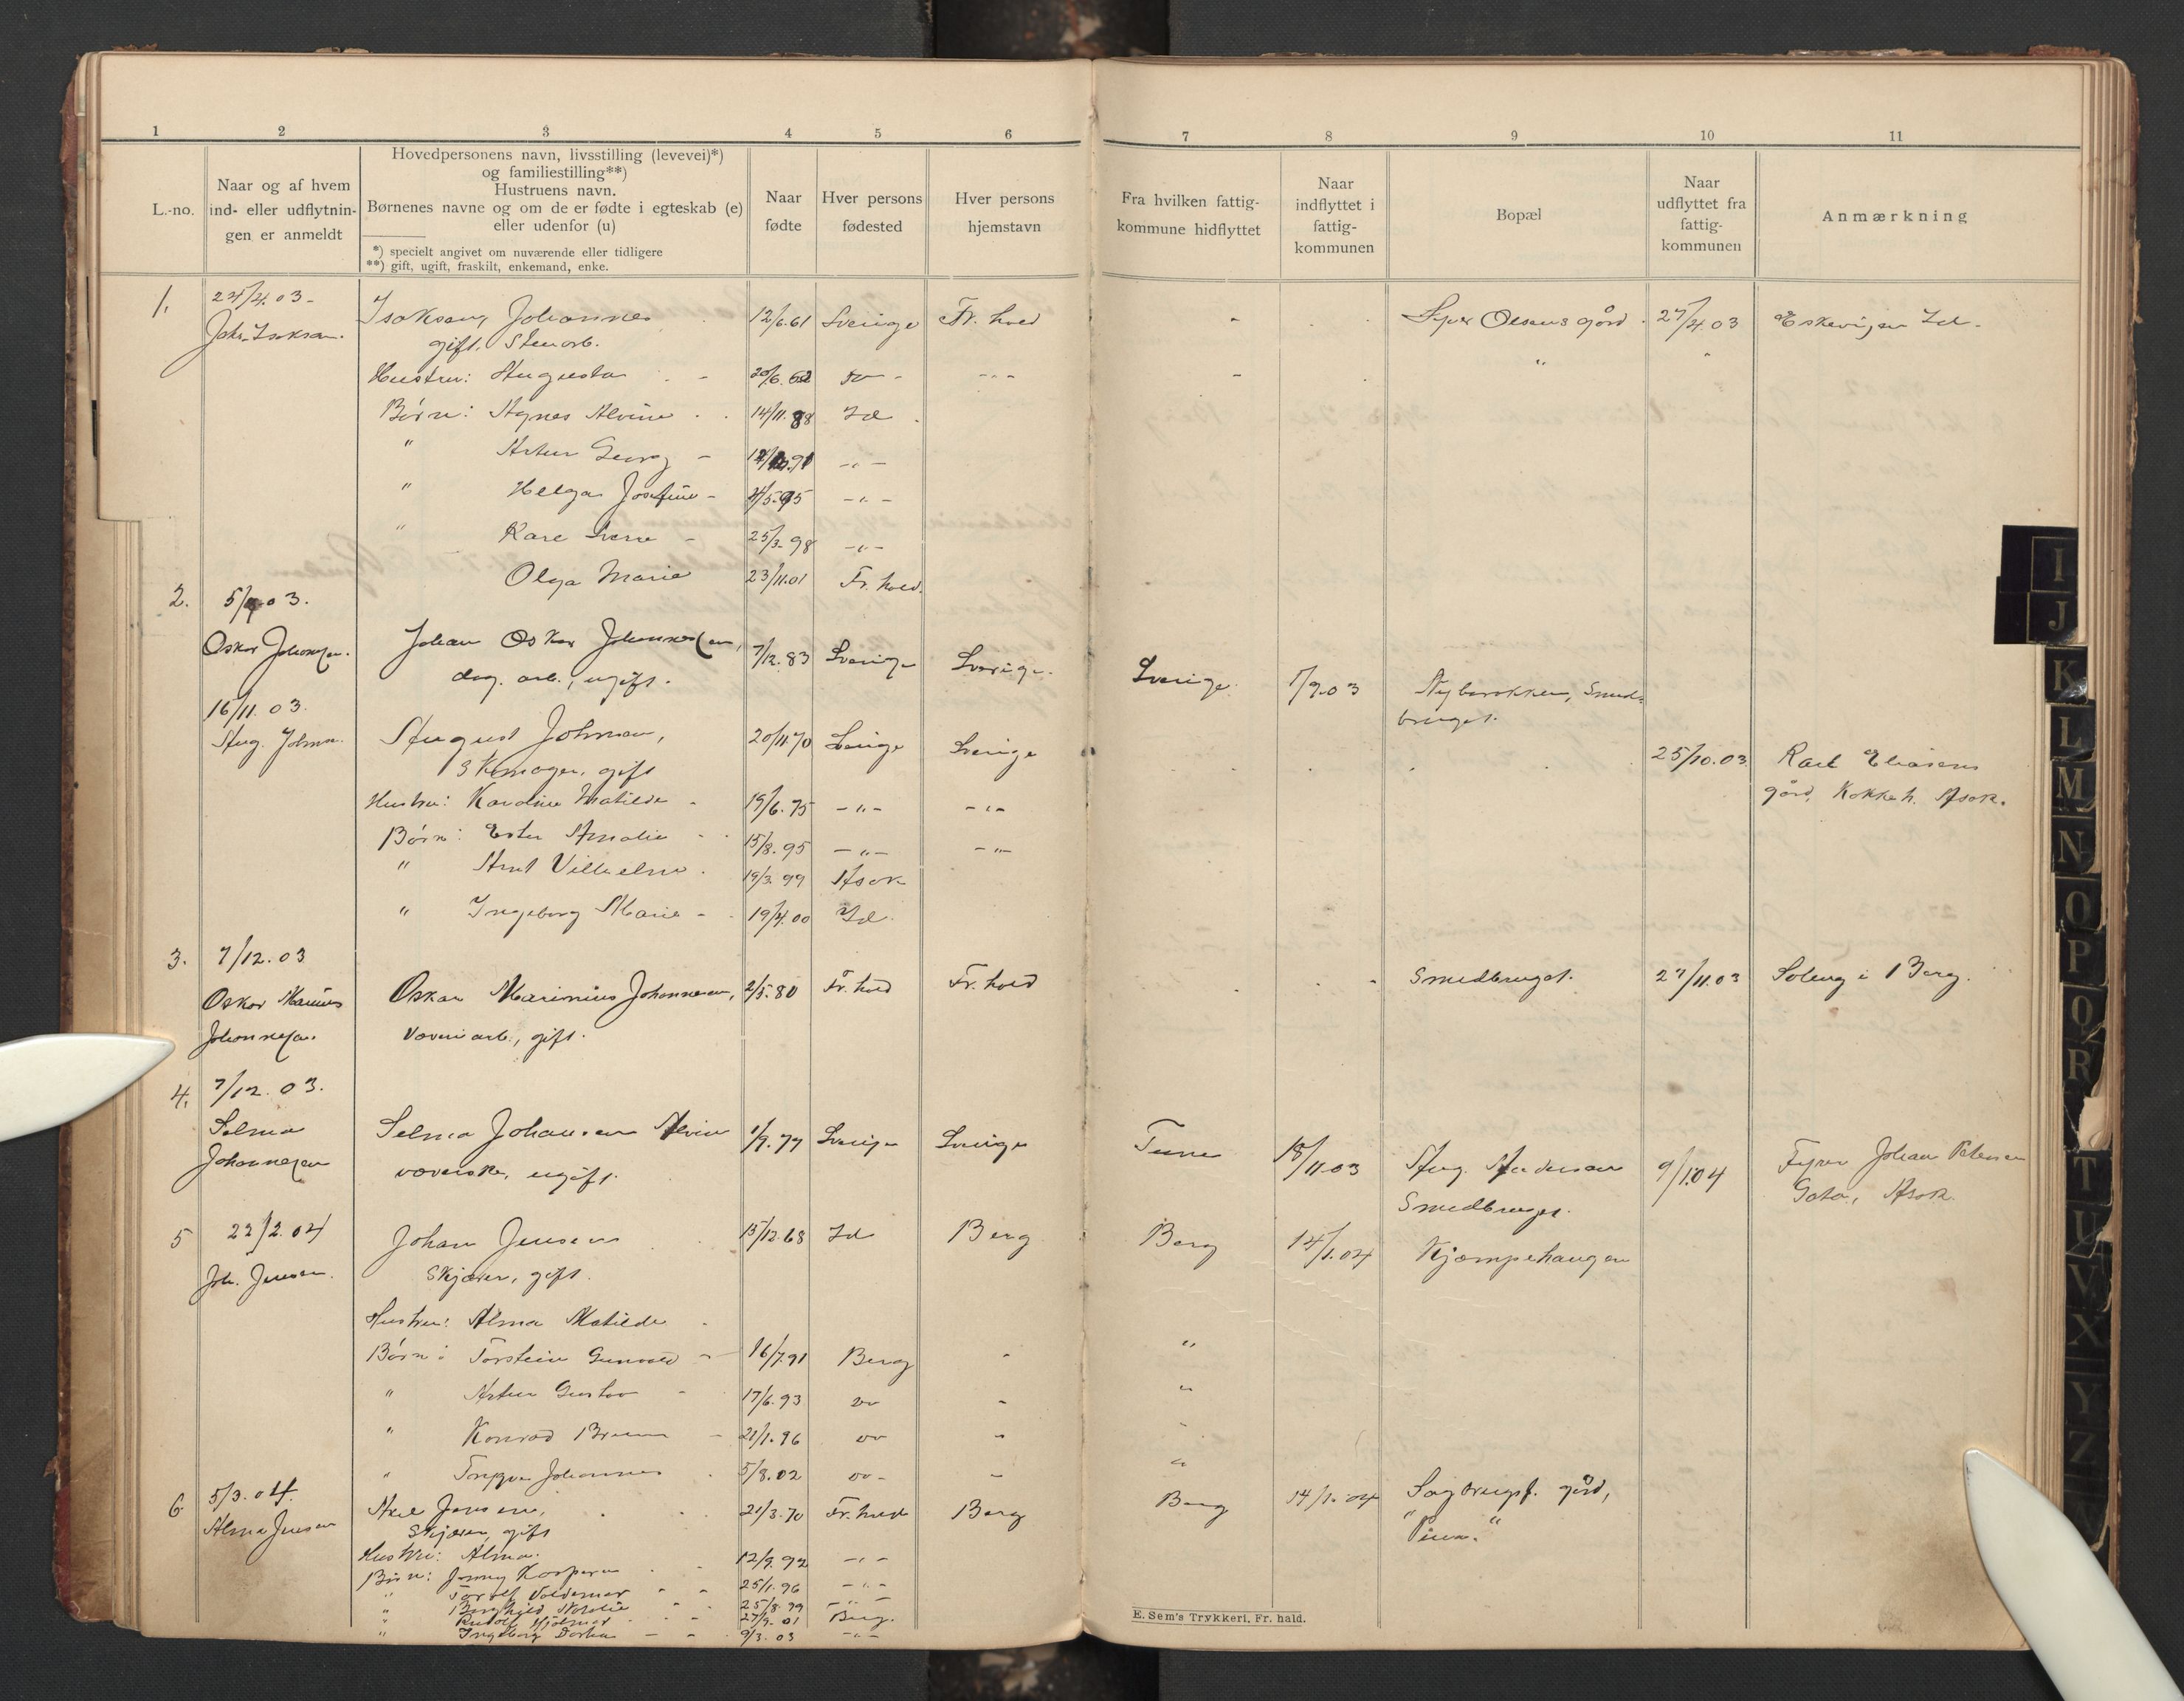 1 2 3 4 5 6 7 8 9 10 11
L.-no.
Naar og af hvem
ind- eller udflytnin-
gen er anmeldt
Hovedpersonens navn, livsstilling (levevei)*)
og familiestilling**)
Hustruens navn.
Børnenes navne og om de er fødte i egteskab (e)
eller udenfor (u)
*) specielt angivet om nuværende eller tidligere
**) gift, ugift, fraskilt, enkemand, enke.
Naar
fødte
Hver persons
fødested
Hver persons
hjemstavn
Fra hvilken fattig-
kommune hidflyttet
Naar
indflyttet i
fattig-
kommunen
Bopæl
Naar
udflyttet fra
fattig-
kommunen
Anmærkning
1. 24/4.03. Isaksen, Johannes 12/6.61 Sverige Fr.hald Olsens gård 27/4.03 Eskevigen Id.
Johs. Isaksen. gift, Stenarb.
Hustru: Augusta 20/6.62 do " "
Børn: Agnes Alvine 14/11.88 Id
" Artur Georg -"-
" Helga Josefine 4/5.95 -"-
" Kare Sverre 25/3.98 -"-
Olga Marie 23/11.01 Fr.hald.
2. 5/9.03.
Oskar Johannesen. Johan Oskar Johannessen, 7/12.83 Sverige Sverige. Sverige. 1/9.03 Nybrakken, Smed-
dag. arb., ugift. bruget.
16/11.03.
Aug. Johns. August Johnsen, 20/11.70 Sverige Sverige 25/10.03 Karl Eliasens
Skomager, gift gård, Kokkeh. Asak.
Hustru: Karoline Matilde 19/6.75 -"- -"-
Børn: Ester Amalie 15/8.95 -"- -"-
" Arnt Vilhelm 19/3.99 Asak
" Ingeborg Marie 19/4.00 Id.
3. 7/12.03
Oskar Marinius Oskar Marinius Johannesen, 2/5.80 Fr.hald Fr.hald Smedbruget. 27/11.03 Soleng i Berg.
Johannesen. Væveriarb., gift.
4. 7/12.03.
Selma Selma Johansen Alvine 1/9.77 Sverige Sverige Tune 18/11.03 Aug. Andersen 9/1.04 Fyrer Johan Petersen
Johannesen væverske, ugift. Smedbruget. Gata, Asak.
5 22/2.04 Johan Jensen 15/12.68 Id Berg Berg 14/1.04 Kjæmpehaugen
Joh. Jensen. Skjærer, gift.
Hustru: Alma Matilde
Børn: Torstein Gunvald 16/7.91 Berg " "
" Artur Gustav 17/6.93 do " "
" Konrad Bruun 21/1.96 do " "
" Johannes 5/8.02 do " "
6 5/3.04. Axel Jensen, 21/3.70 Fr.hald Berg Berg 14/1.04 Sagbrugsf. gård,
Alma Jensen Skjærer, gift
Hustru: Alma
Børn: Jenny 12/9.92 -"-
" Torolf Valdemar 25/1.96 -"-
" Borghild Natalie 25/8.99 -"-
" Rudolf Hjalmar 27/9.01 Berg.
" Ingeborg Dorthea 9/3.03 -"-
E. Sem's Trykkeri, Fr. hald.
I
J
K
L
M
N
O
P
Q
R
T
U
V
X
Y
Z